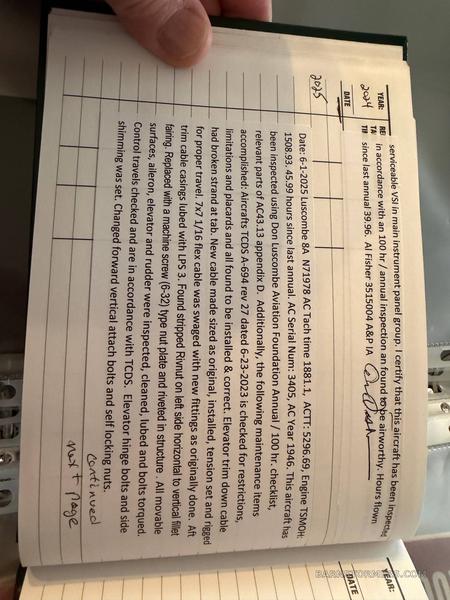 YEAR:
2024
DATE
serviceable VSI in main instrument panel group. I certify that this aircraft has been inspected
in accordance with an 100 hr / annual inspection an found to be airworthy. Hours flown
since last annual 39.96 Al Fisher 3515004 A&P IA
2025
Date: 6-1-2025 Luscombe 8A N71978 AC Tach time 1881.1, ACTT: 5296.69, Engine TSMOH:
1508.93. 45.99 hours since last annual. AC Serial Num: 3405, AC Year 1946. This aircraft has
been inspected using Don Luscombe Aviation Foundation Annual / 100 hr. checklist,
relevant parts of AC43.13 appendix D. Additionally, the following maintenance items
accomplished: Aircrafts TCDS A-694 rev 27 dated 6-23-2023 is checked for restrictions,
limitations and placards and all found to be installed & correct. Elevator trim down cable
had broken strand at tab. New cable made sized as original, installed, tension set and rigged
for proper travel. 7x7 1/16 flex cable was swaged with new fittings as originally done. Aft
trim cable casings lubed with LPS 3. Found stripped Rivnut on left side horizontal to vertical fillet
fairing. Replaced with a machine screw (6-32) type nut plate and riveted in structure . All movable
surfaces, aileron, elevator and rudder were inspected, cleaned, lubed and bolts torqued.
Control travels checked and are in accordance with TCDS. Elevator hinge bolts and side
shimming was set. Changed forward vertical attach bolts and self locking nuts.
continued
next page
YEAR:
DATE
BARNSTORMERS.COM